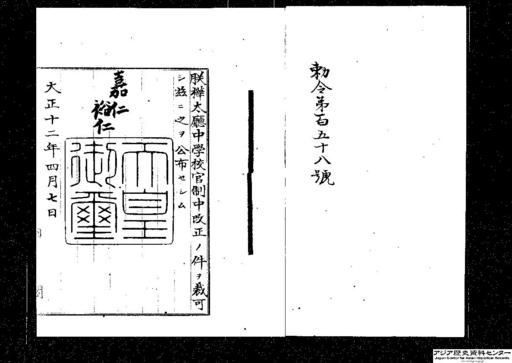 勅令第百五十八號
朕樺太廳中學校官制中改正ノ件ヲ裁可
シ玆ニ之ヲ公布セシム
嘉仁
裕仁
天皇
御璽
大正十二年四月七日
アジア歴史資料センター
Japan Center for Asian Historical Records